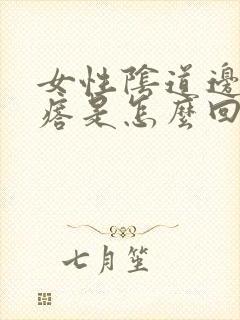 女性陰道邊
痞是怎麼回
七月笙